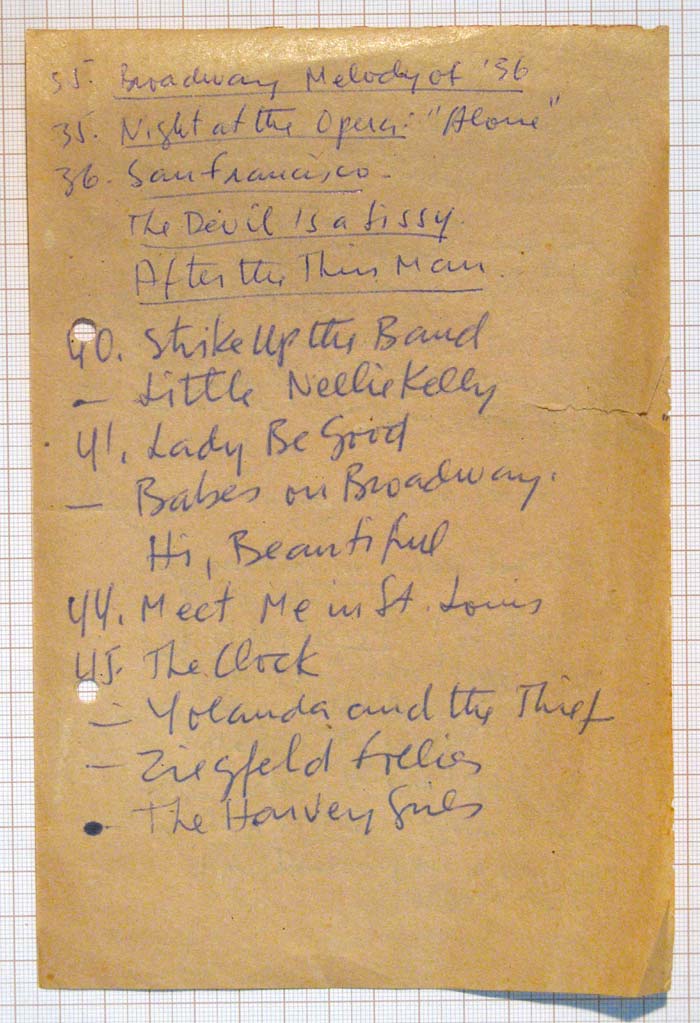 35. Broadway Melody of '36
35. Night at the Opera: "Alone"
36. San Francisco.
The Devil is a Sissy.
After the Thin Man.
40. Strike Up the Band
– Little Nellie Kelly
41. Lady Be Good
– Babes on Broadway.
Hi, Beautiful
44. Meet Me in St. Louis
45. The Clock
– Yolanda and the Thief
– Ziegfeld Follies
– The Harvey Girls